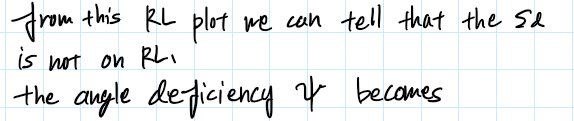 from this RL plot we can tell that the sd
is not on RL.
the angle deficiency ψ becomes